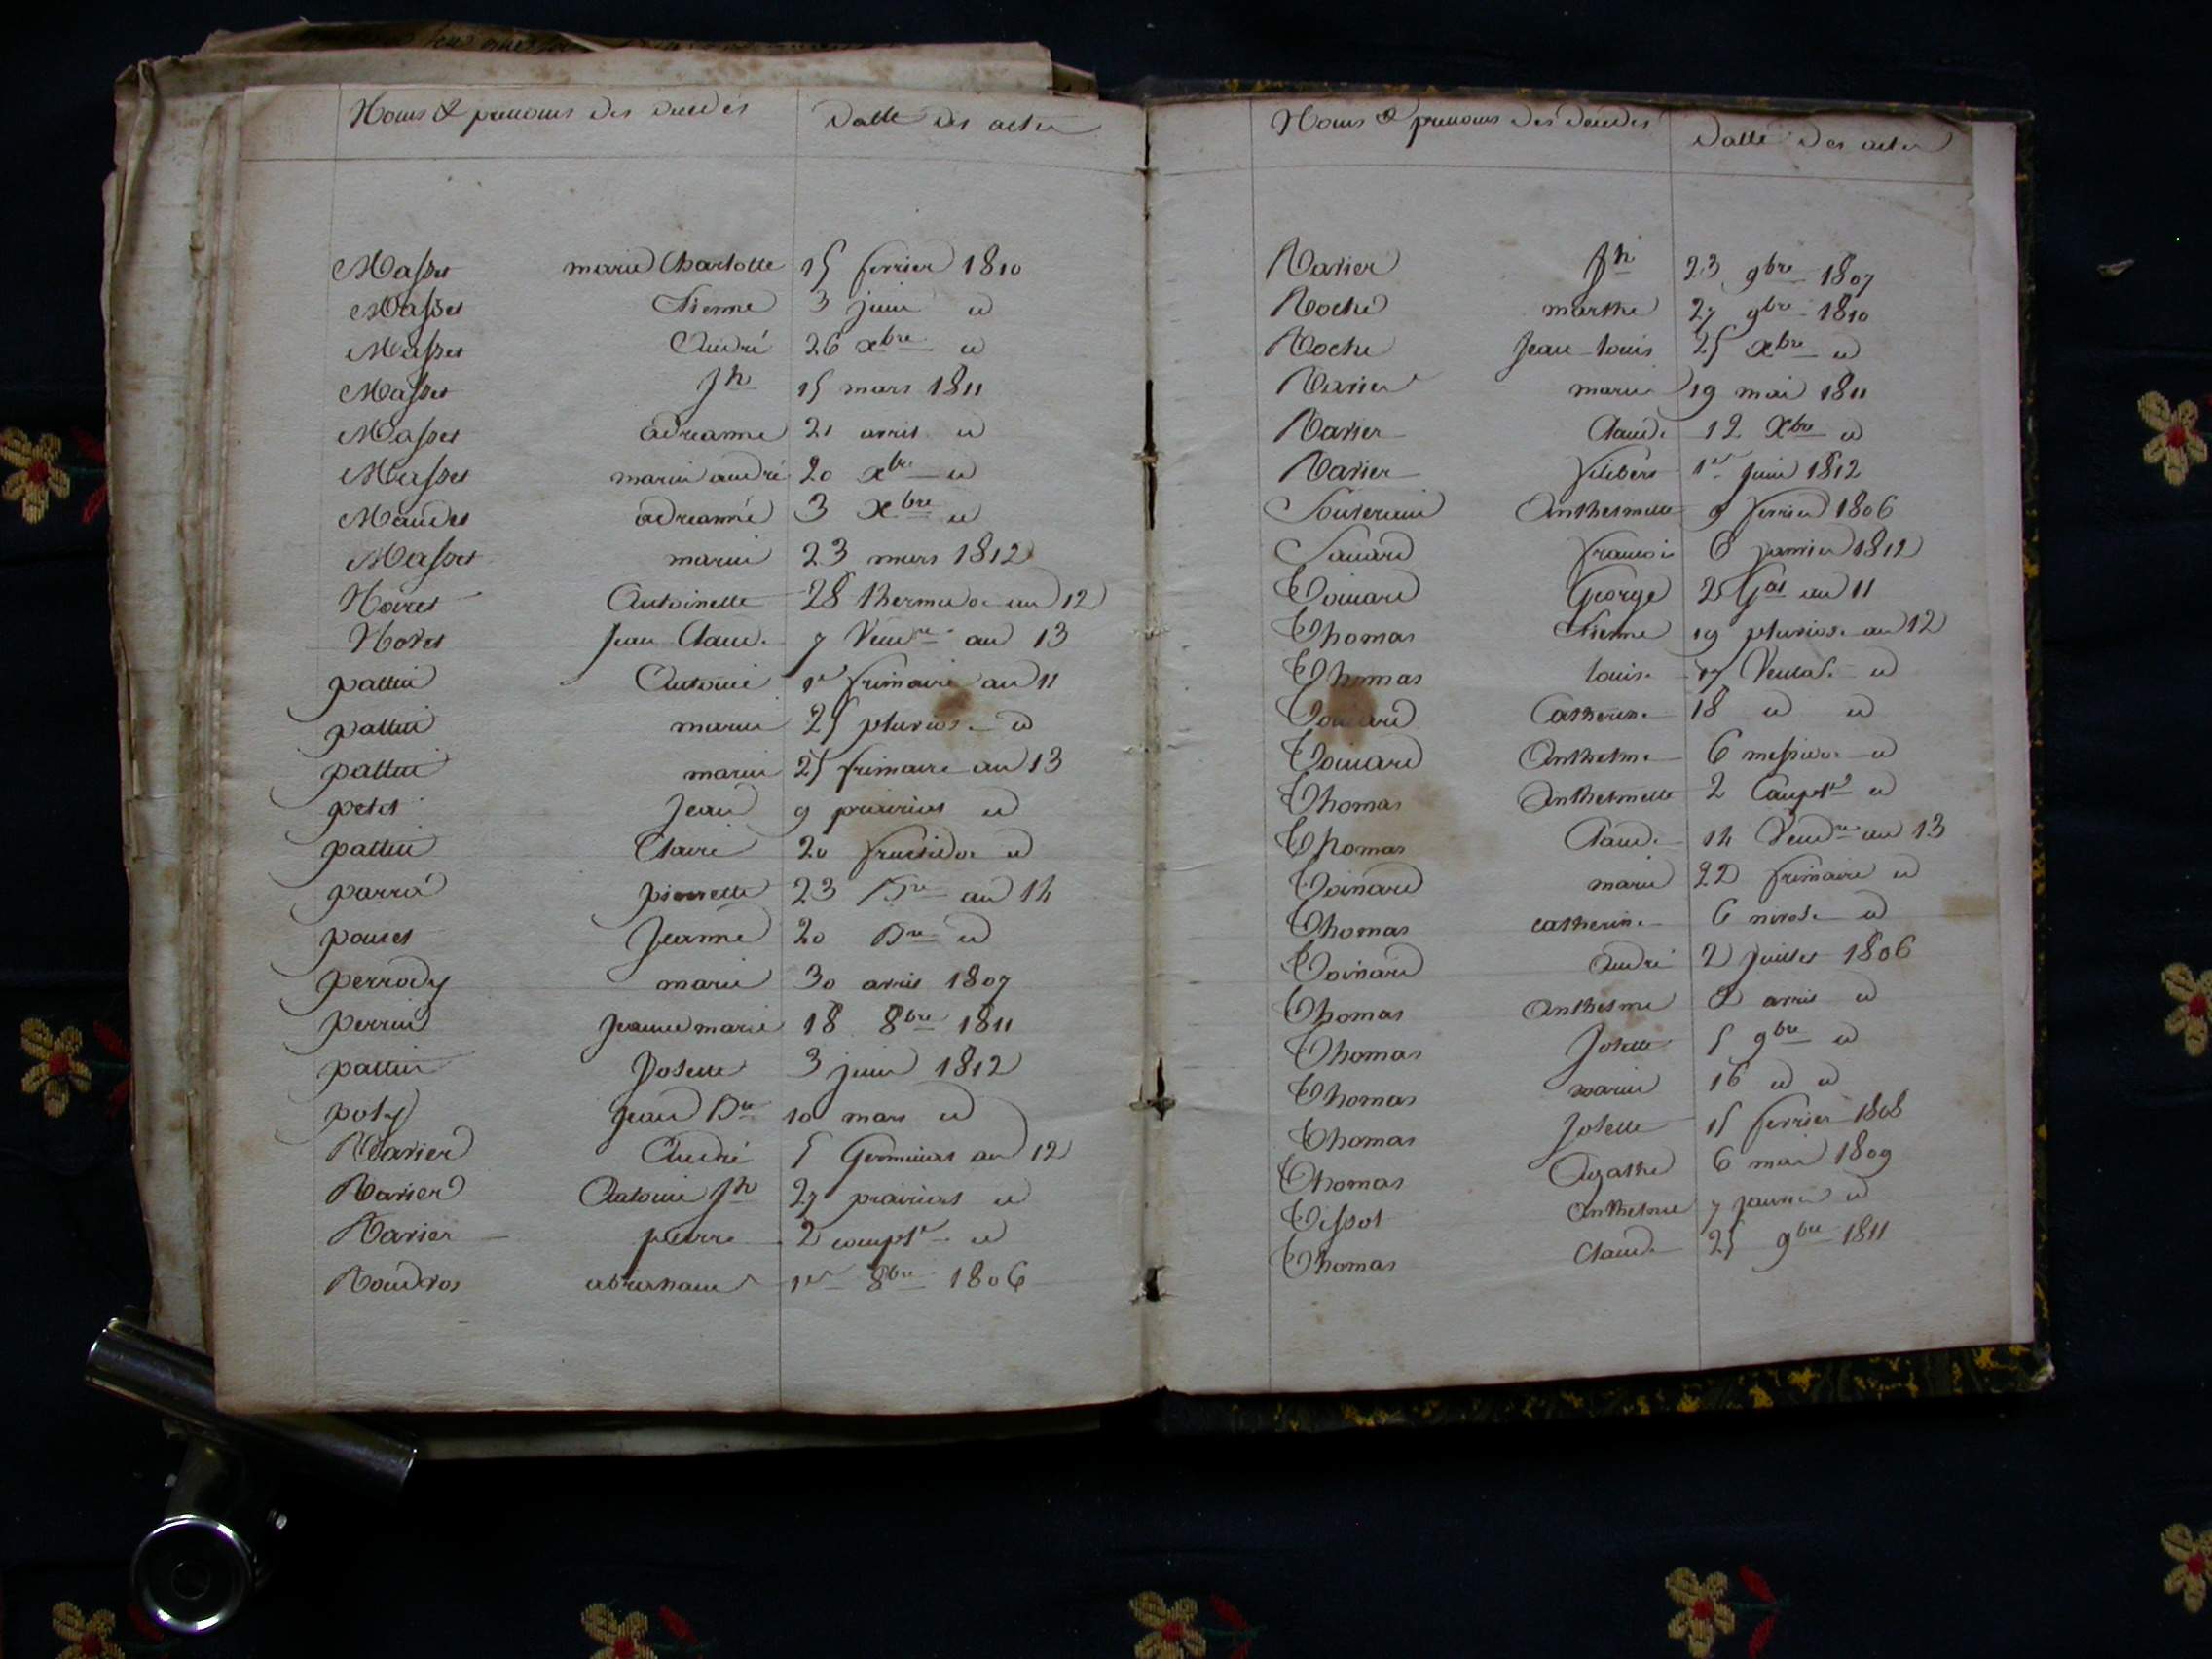 Noms & prenoms des decedés Datte des actes
Masset marie Charlotte 15 fevrier 1810
Masset Etienne 3 juin id
Masset André 26 xbre id
Masset Jh 15 mars 1811
Masset adrianne 21 avril id
Masset marie andré 20 xbre id
Maudet adrianne 3 xbre id
Masset marie 23 mars 1812
Noiret Antoinette 28 thermidor an 12
Noret Jean Claude 7 Vendre an 13
pattin Antoine 1er frimaire an 11
pattin marie 25 pluviose id
pattin marie 25 frimaire an 13
petit Jean 9 prairial id
pattin Claire 20 fructidor id
parra pierrette 23 Bre an 14
poncet Jeanne 20 Bre id
perrody marie 30 avril 1807
perrin Jeanne marie 18 8bre 1811
pattin Josette 3 juin 1812
poty Jean Bte 10 mars id
Ravier André 5 Germinal an 12
Ravier Antoine Jh 27 prairial id
Ravier pierre 2 compre id
abraham 1er 8bre 1806
Noms & prenoms des decedés Datte des actes
Ravier Jh 23 9bre 1807
Roche marthe 27 9bre 1810
Roche Jean louis 25 xbre id
Ravier marie 19 mai 1811
Ravier Claude 12 Xbre id
Ravier filibert 1er juin 1812
Souterain Anthelmette 9 fevrier 1806
Savard francois 6 janvier 1812
Toinard George 25 Gal an 11
Thomas Etienne 19 pluviose an 12
Thomas louise 17 Ventose id
Toinard Catherine 18 id id
Toinard Anthelme 6 messidor id
Thomas Anthelmette 2 Compre id
Thomas Claude 14 Vendre an 13
Toinard marie 22 frimaire id
Thomas catherine 6 nivose id
Toinard André 2 juillet 1806
Thomas Anthelme 8 avril id
Thomas Josette 5 9bre id
Thomas marie 16 id id
Thomas Josette 15 fevrier 1808
Thomas Agathe 6 mai 1809
Tissot Anthelme 7 janvier id
Thomas Claude 25 9bre 1811